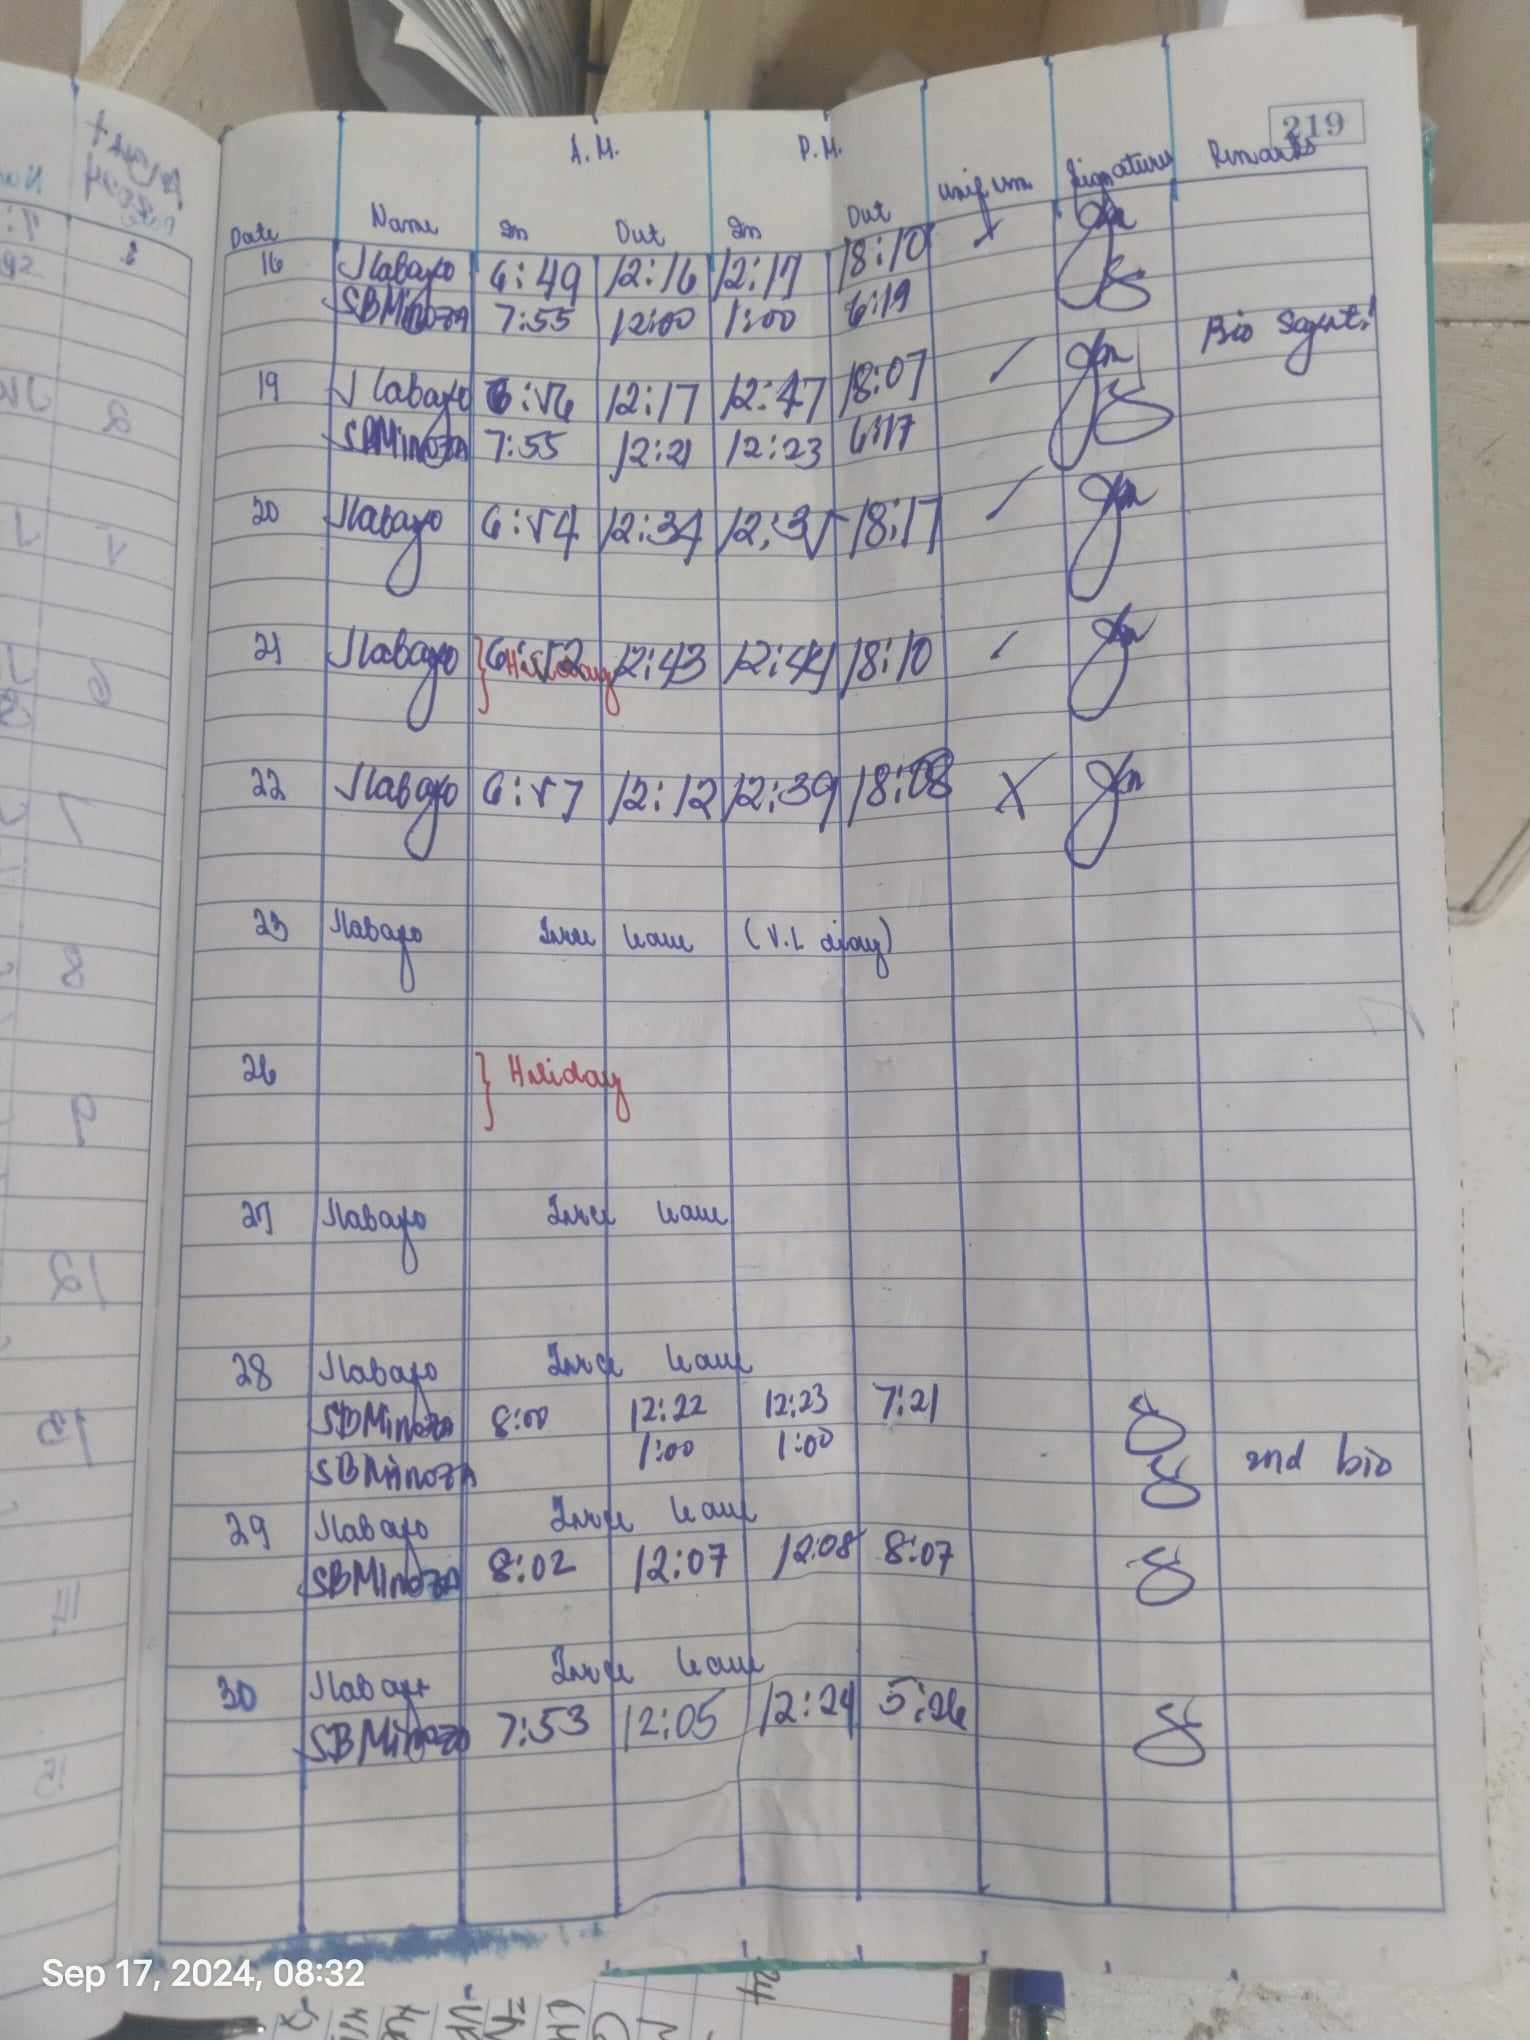 219
A.M. P.M.
Date Name In Out In Out Uniform Signatures Remarks
16 Jlabayo 6:49 12:16 12:17 18:10
SBMinoza 7:55 12:00 1:00 6:19
Bio
19 Jlabayo 6:56 12:17 12:47 18:07
SBMinoza 7:55 12:21 12:23 6:17
20 Jlabayo 6:54 12:34 12:35 18:17
21 Jlabayo 6:52 12:43 12:44 18:10
Holiday
22 Jlabayo 6:57 12:12 12:39 18:08 X
23 Jlabayo Force leave (V.L
26 Holiday
27 Jlabayo Force leave
28 Jlabayo Force leave
SBMinoza 8:00 12:22 12:23 7:21
SBMinoza 1:00 1:00 2nd bio
29 Jlabayo Force leave
SBMinoza 8:02 12:07 12:08 8:07
30 Jlabayo Force leave
SBMinoza 7:53 12:05 12:24 5:26
Sep 17, 2024, 08:32